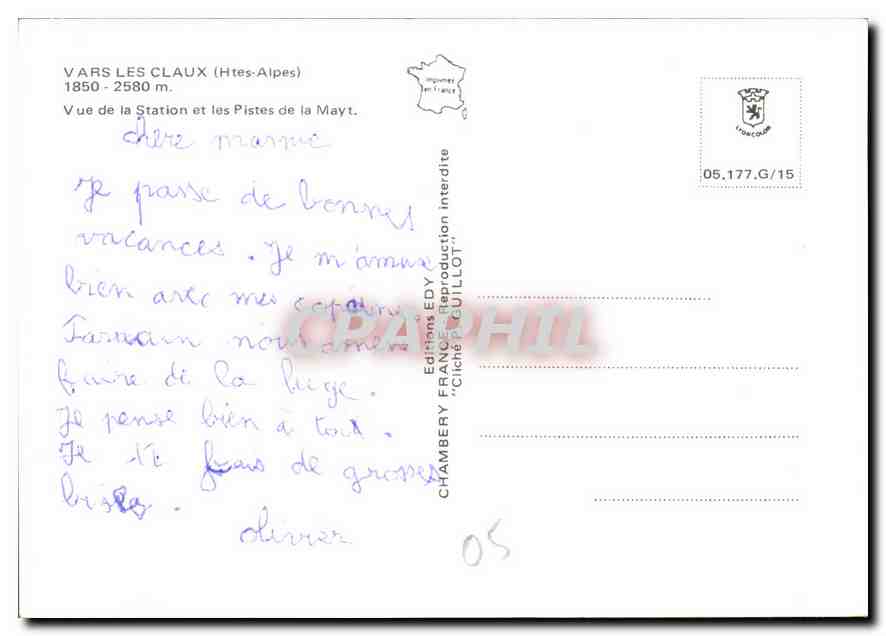 VARS LES CLAUX (Htes-Alpes)
1850 - 2580 m.
Vue de la Station et les Pistes de la Mayt.
Imprimée
en France
LYONCOLOR
05.177.G/15
chère mamie
Je passe de bonnes
vacances. Je m'amuse
bien avec mes copains.
nous amène
faire de la luge.
Je pense bien à toi.
Je te fais de grosses
bises.
olivier
Editions EDY
CHAMBERY FRANCE. Reproduction interdite
"Cliché P. GUILLOT"
CPAPHIL
05